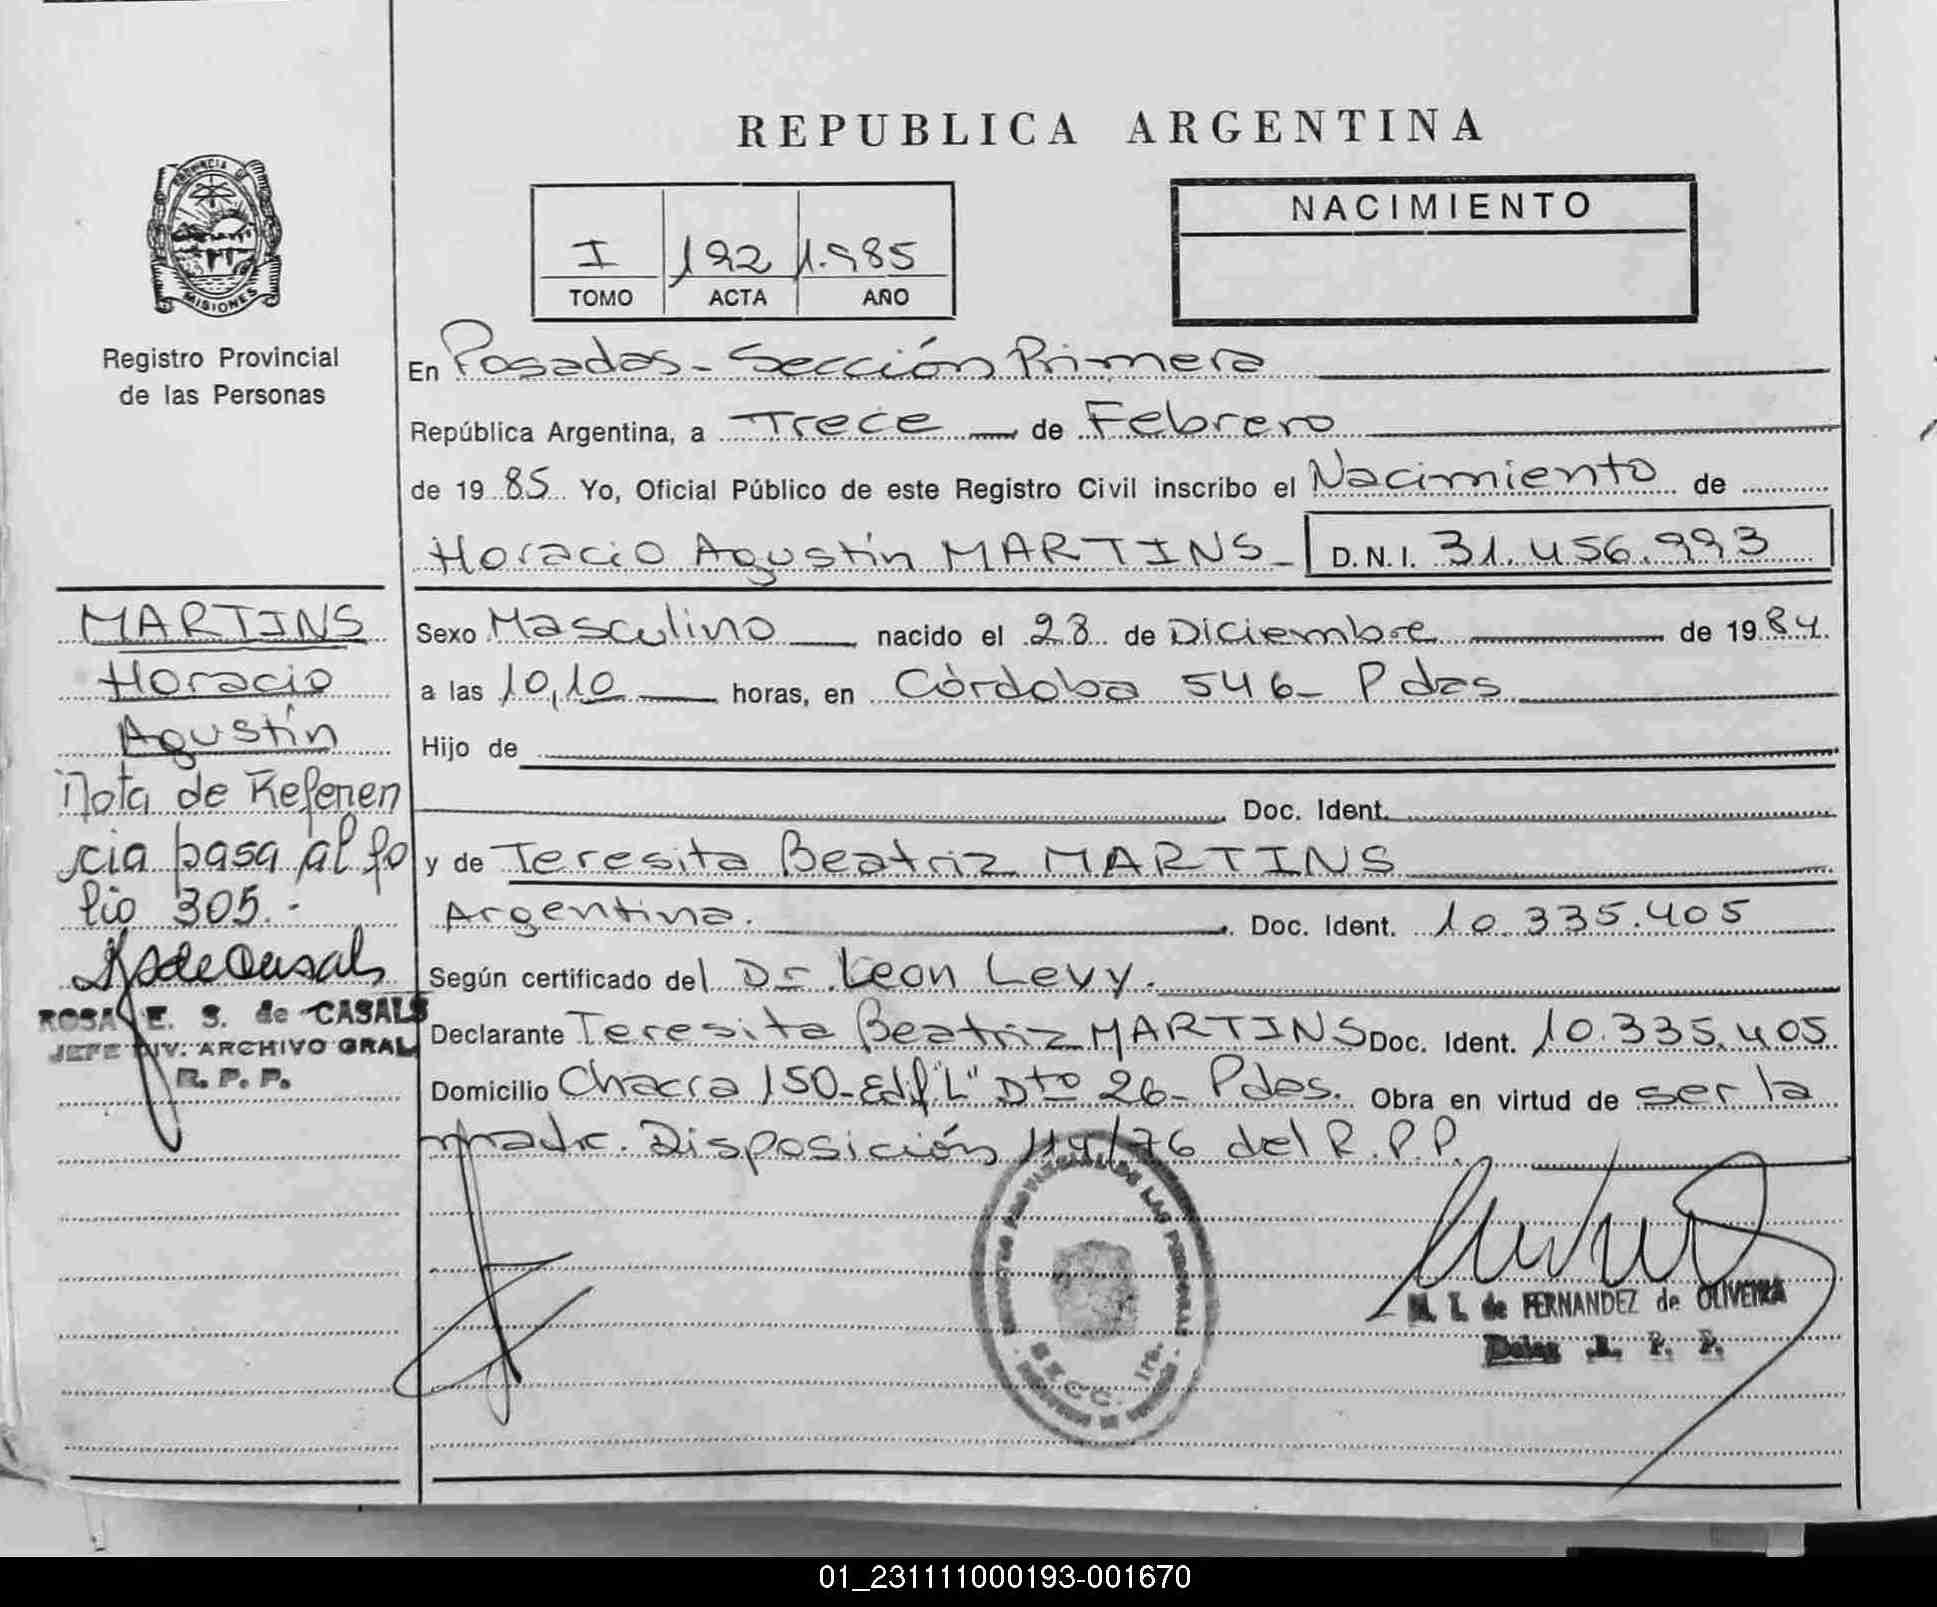 REPUBLICA ARGENTINA
PROVINCIA DE
MISIONES
Registro Provincial
de las Personas
I 192 1.985
TOMO ACTA AÑO
NACIMIENTO
En Posadas - Sección Primera
República Argentina, a Trece de Febrero
de 19 85 Yo, Oficial Público de este Registro Civil inscribo el Nacimiento de
Horacio Agustín MARTINS - D.N.I. 31.456.993
Sexo Masculino nacido el 28 de Diciembre de 19 84.
a las 10,10 horas, en Córdoba 546 - Pdas
Hijo de
Doc. Ident.
y de Teresita Beatriz MARTINS
Argentina. Doc. Ident. 10.335.405
Según certificado del Dr Leon Levy.
Declarante Teresita Beatriz MARTINS Doc. Ident. 10.335.405
Domicilio Chacra 150 - Edif "L" Dto 26 - Pdas. Obra en virtud de ser la
madre. Disposición 114/76 del R.P.P.
MARTINS
Horacio
Agustín
Nota de Referen
cia pasa al fo
lio 305.-
ROSA E. S. de CASALS
JEFE DIV. ARCHIVO GRAL
R. P. P.
PROVINCIAL DE LAS PERSONAS
SECC. 1ra.
M. I. de FERNANDEZ de OLIVEIRA
Deleg. R. P. P.
01_231111000193-001670